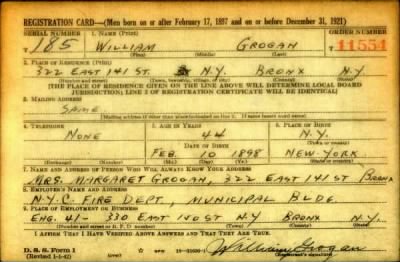 REGISTRATION CARD—(Men born on or after February 17, 1897 and on or before December 31, 1921)
SERIAL NUMBER 1. NAME (Print) ORDER NUMBER
T 185 WILLIAM GROGAN 11554
(First) (Middle) (Last)
2. PLACE OF RESIDENCE (Print)
322 EAST 141 ST. N.Y. BRONX N.Y
(Number and street) (Town, township, village, or city) (County) (State)
[THE PLACE OF RESIDENCE GIVEN ON THE LINE ABOVE WILL DETERMINE LOCAL BOARD
JURISDICTION; LINE 2 OF REGISTRATION CERTIFICATE WILL BE IDENTICAL]
3. MAILING ADDRESS
SAME
[Mailing address if other than place indicated on line 2. If same insert word same]
4. TELEPHONE 5. AGE IN YEARS 6. PLACE OF BIRTH
NONE 44 N.Y.
DATE OF BIRTH (Town or county)
FEB. 10 1898 NEW-YORK
(Exchange) (Number) (Mo.) (Day) (Yr.) (State or country)
7. NAME AND ADDRESS OF PERSON WHO WILL ALWAYS KNOW YOUR ADDRESS
MRS. MARGARET GROGAN, 322 EAST 141 ST BRONX
8. EMPLOYER'S NAME AND ADDRESS
N.Y.C. FIRE DEPT. MUNICIPAL BLDG.
9. PLACE OF EMPLOYMENT OR BUSINESS
ENG. 41- 330 EAST 150 ST N.Y BRONX N.Y.
(Number and street or R. F. D. number) (Town) (County) (State)
I AFFIRM THAT I HAVE VERIFIED ABOVE ANSWERS AND THAT THEY ARE TRUE.
D. S. S. Form 1
(Revised 1-1-42) (over)
William Grogan
(Registrant's signature)